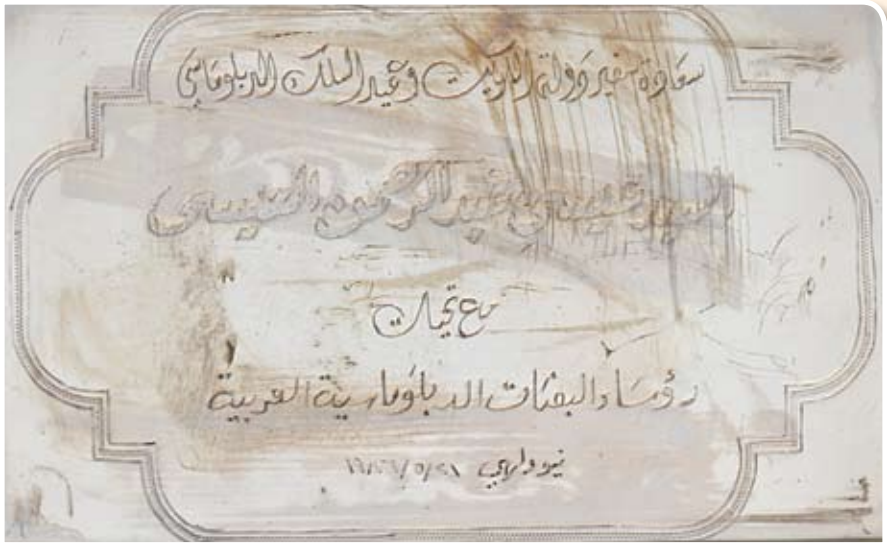 سعادة سفير دولة الكويت وعميد السلك الدبلوماسي
السيد عيسى عبدالرحمن العيسى
مع تحيات
رؤساء البعثات الدبلوماسية العربية
نيودلهي